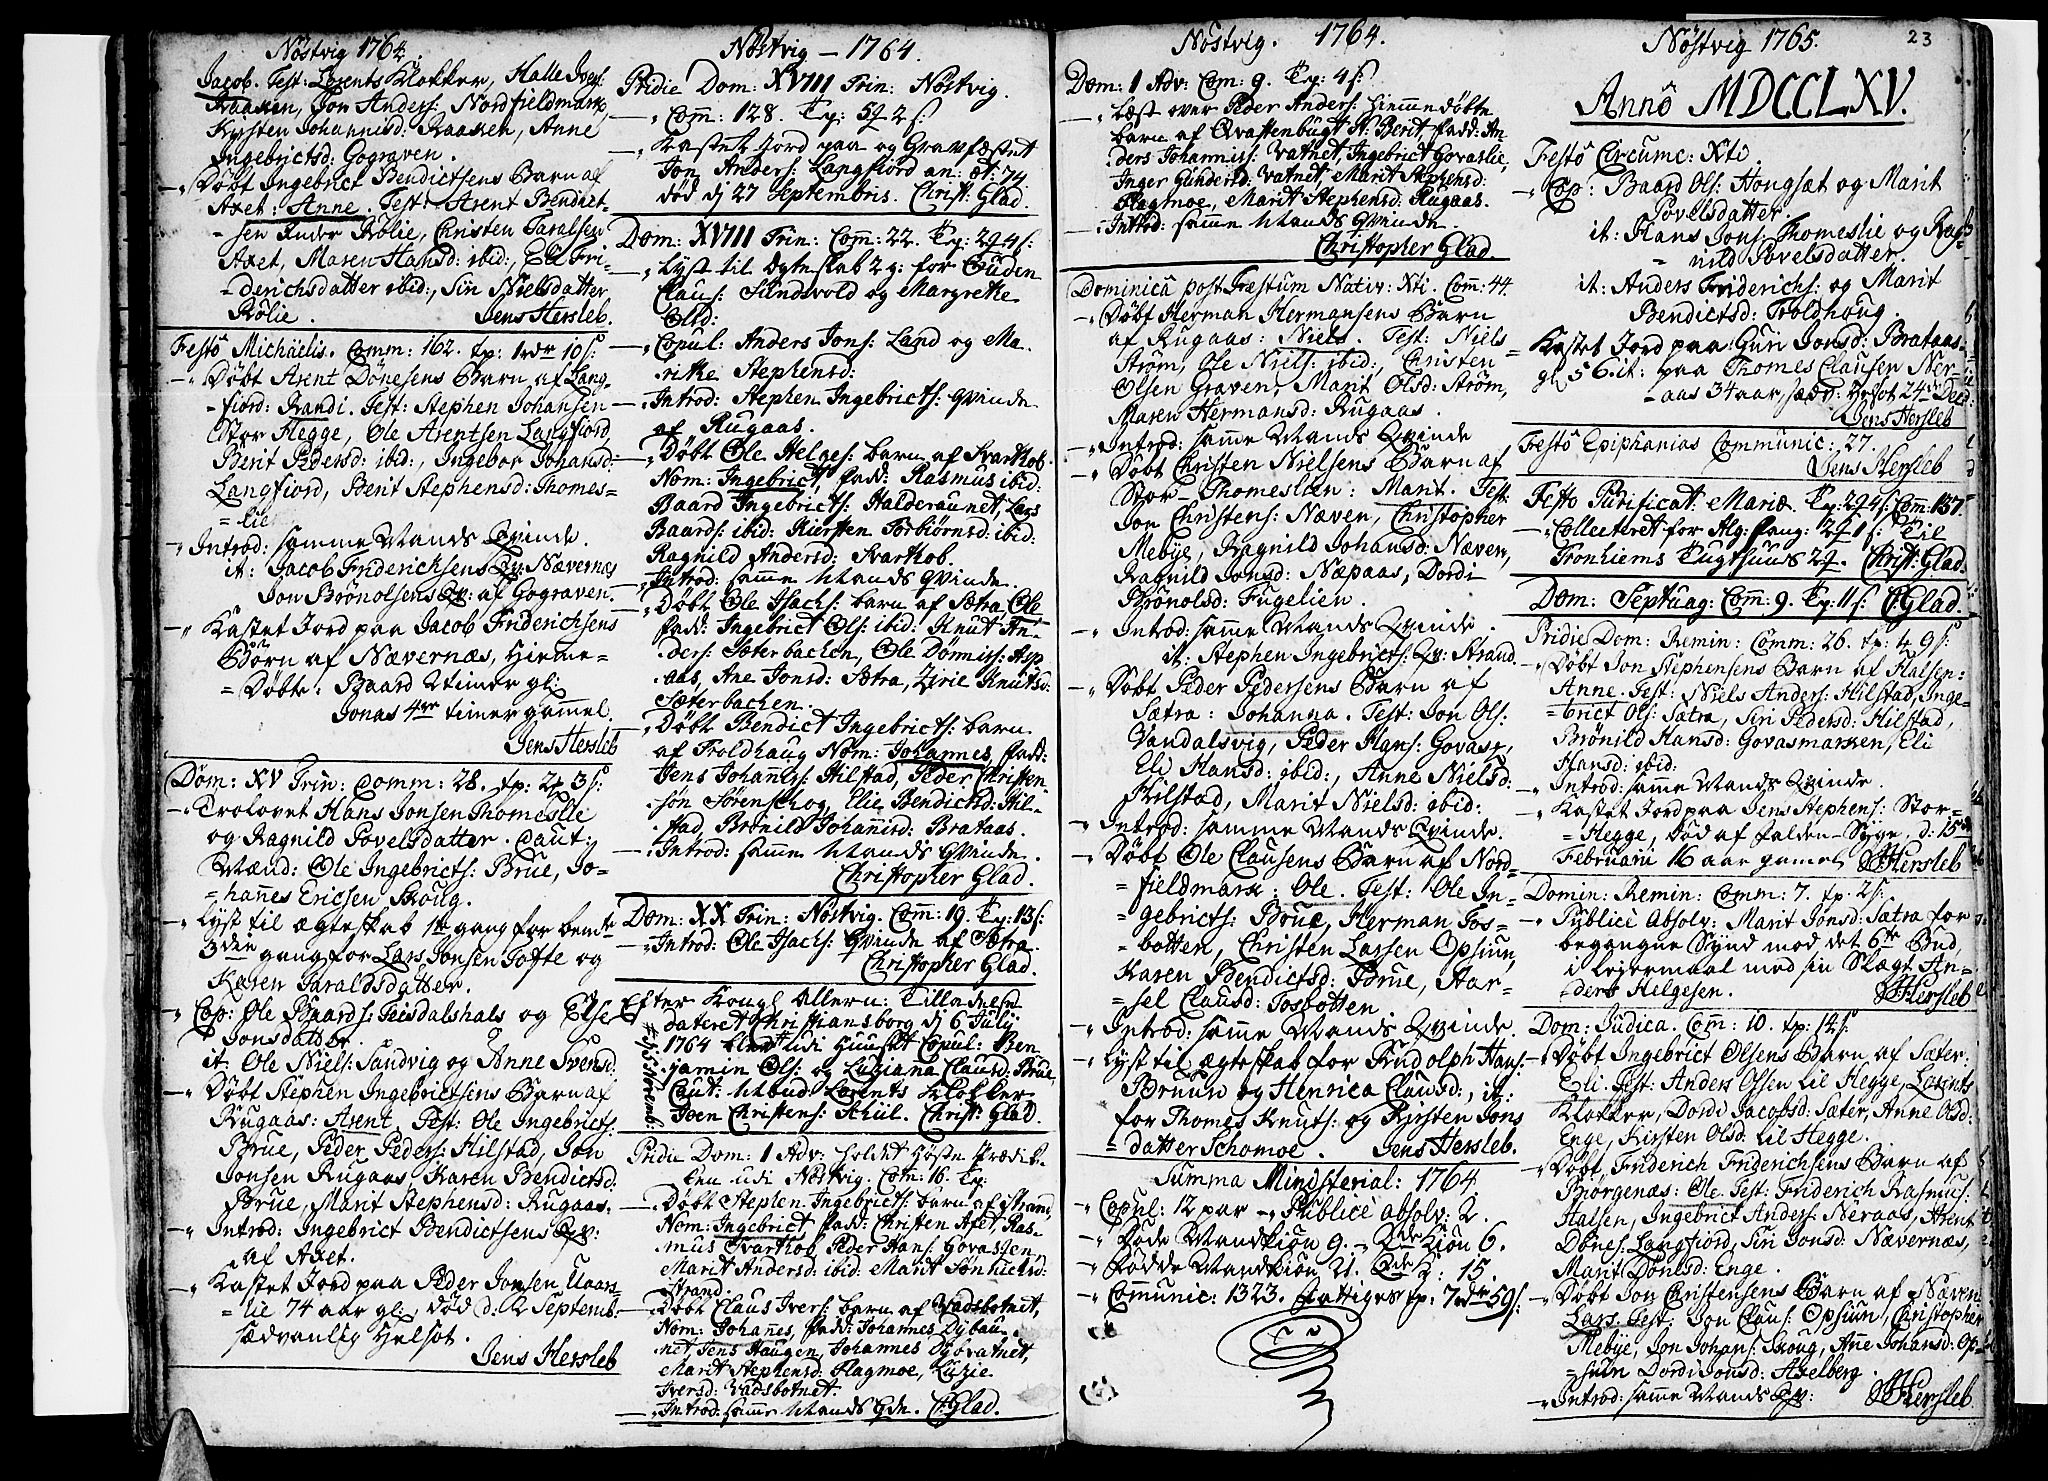 Nöstvig 1764.
Jacob. Test: Lorents Klokker, Halle Ivers:
Aaasen, Jon Anders: Nordfieldmark,
Kirsten Johannisd: Aaasen, Anne
Ingebrictsd: Gograven.
Döbt Ingebrict Bendictsens Barn af
Axet: Anne. Test: Arent Bendict-
sen Ender Rölie, Christen Taralsen
Axet, Maren Hansd: ibid:, Eli Fri-
derichsdatter ibid:, Siri Nielsdatter
Rölie. Jens Hersleb.
Festô Michäelis. Comm: 162. tp: 1 rdr 10 s:
Döbt Arent Dönesens Barn af Lang-
fiord: Randi. Test: Stephen Johansen
Stor Hegge, Ole Arentsen Langfiord,
Berit Pedersd: ibid:, Ingebor Johansd:
Langfiord, Berit Stephensd: Thomes-
lie
Introd: samme Mands Qvinde.
it: Jacob Friderichsens Qv: Nævernæs
Jon Brönolsens Qv: af Gograven.
Kastet Jord paa Jacob Friderichsens
Börn af Nævernæs, hieme-
Döbte: Baard timer gl:
Jonas 4re timer gammel.
Jens Hersleb
Dom: XV Trin: Comm: 28. tp: 2 3 s:
Trolovet Hans Jonsen Thomeslie
og Ragnild Povelsdatter. Caut:
Mænd: Ole Ingebricts: Brue, Jo-
hannes Ericsen Skoug.
lyst til ægteskab 1te gang for bemte
3die gang for Lars Jonsen Tofte og
Karen Taraldsdatter.
Cop: Ole Baards: Teisdalshals og Else
Jonsdatter.
it: Ole Niels: Sandvig og Anne Svensd:
Döbt Stephen Ingebrictsens Barn af
Rugaas: Arent. Test: Ole Ingebricts:
Brue, Peder Peders: Hilstad, Jon
Jonsen Rugaas, Karen Bendictsd:
Brue, Marit Stephensd: Rugaas.
Introd: Ingebrict Bendictsens Qv:
af Axet.
Kastet Jord paa Peder Jonsen Uaars-
lie 74 aar gl:, död d: 2 Septemb:
sædvanlig Helsot.
Jens Hersleb
Nöstvig - 1764.
Pridie Dom: XVIII Trin: Nöstvig.
Comm: 128. Tp: 5 2 s
Kastet Jord paa og Gravfæstet
Jon Anders: Langfiord an: æt: 74
död dj 27 Septembris. Christ: Glad.
Dom: XVIII Trin: Comm: 22. Tp: 2 4 s:
Lyst til Egteskab 2 g: for Guden
Claus: Sundsvold og Margrethe
Olsd:
Copul: Anders Jons: Land og Ma-
rithe Stephensd:
Introd: Stephen Ingebricts: qvinde
af Rugaas.
Döbt Ole Helges: barn af Svarthob.
Nom: Ingebrict, fadd: Rasmus ibid:
Baard Ingebricts: Halderaunet, Lars
Baards: ibid: Kirsten Torbiörnsd: ibid:
Ragnild Andersd: Svarthob.
Introd: samme Mands qvinde.
Döbt Ole Isachs: barn af Sætra, Ole
fadd: Ingebrict Ols: ibid: Knut An-
ders: Sæterbachen, Ole Dönniss: Asp-
aas, Ane Jonsd: Sætra, Ziril Knutsd:
Sæterbachen.
Döbt Bendict Ingebricts: barn
af Troldhaug Nom: Johannes, fadd:
Jens Johans: Hilstad, Peder Christen-
sön Sörenskog, Elie Bendictsd: Hil-
stad, Brönild Johannisd: Brataas.
Introd: samme Mands qvinde.
Christopher Glad.
Dom: XX Trin: Nöstvig. Comm: 19. Tp: 13 s:
Introd: Ole Isachs: Qvinde af Sætra.
Christopher Glad.
Efter Kongl Allern: Tilladelse
dateret Christiansborg dj 6 Julij
1764 blev udi Huuset Copul: Ben-
jamin Ols: og Luziana Clausd: Brue,
Caut: Mænd Lorents Klokker
Joen Christens: Schiel. Christ: Glad.
d 5 Novemb:
Pridie Dom: 1 Adv: holdet Höste Prædik-
ken udi Nöstvig. Com: 16. Tp:
Döbt Stephen Ingebricts: barn af Strand,
Nom: Ingebrict, fadd: Christen Axet, Ras-
mus Svarthob, Peder Hans: Govasen,
Marit Andersd: ibid: Marit
Strand.
Döbt Claus Ivers: barn af Vadsbotnet,
Nom: Johanes, fadd: Johannes Dybau-
net, Jens Haugen, Johannes Dybvatnet,
Marit Stephensd: Flagmoe, Luzie
Iversd: Vadsbotnet.
Introd: samme Mands Qde. C: Glad.
Nöstvig. 1764.
Dom: 1 Adv: Com: 9. Tp: 4 s:
Læst over Peder Anders: hiemmedöbte
barn af Qvastenbugt N: Berit, fadd: An-
ders Johanniss: Vatnet, Ingebrict Govaslie,
Inger Gundersd: Vatnet, Marit Stephensd:
Flagmoe, Marit Stephensd: Rugaas.
Introd: samme Mands qvinde.
Christopher Glad.
Dominicâ post Festum Nativ: Xti. Com: 44.
Döbt Herman Hermansens Barn
af Rugaas: Niels. Test: Niels
Ström, Ole Niels: ibid:, Christen
Olsen Graven, Marit Olsd: Ström,
Maren Hermansd: Rugaas.
Introd: samme Mands Qvinde
Döbt Christen Nielsens Barn af
Stor-Thomeslien: Marit. Test:
Jon Christens: Næven, Christopher
Mebye, Ragnild Johansd: Næven,
Ragnild Jonsd: Næpaas, Dordi
Brönolsd: Fugelien.
Introd: samme Mands Qvinde.
it: Stephen Ingebricts: Qv: Strand
Döbt Peder Pedersens Barn af
Sætra: Johanna. Test: Jon Ols:
Vandalsvig, Peder Hans: Govasr,
Eli Hansd: ibid:, Anne Nielsd:
Hilstad, Marit Nielsd: ibid:
Introd: samme Mands Qvinde.
Döbt Ole Clausens Barn af Nord-
fieldmark: Ole. Test: Ole In-
gebricts: Brue, Herman Fos-
botten, Christen Larsen Opsiun,
Karen Bendictsd: Brue, Aar-
sel Clausd: Fosbotten.
Introd: samme Mands Qvinde.
lyst til ægteskab for Rudolph Hans:
Bruun og Henrica Clausd:, it:
for Thomes Knuts: og Kirsten Jons
datter Schomoe. Jens Hersleb.
Summa Ministerial: 1764
Copul: 12 par Publicè absolv: 2.
Döde Mandkiön 9. Qvdekiön 6.
Födde Mandkiön 21. Qde: 15.
Communic: 1323. Fattiges tp: 7 rdr 59 s:
Nöstvig 1765.
23
Annô MDCCLXV.
Festô Circumc: Xti.
Cop: Baard Ols: Hongsæt og Marit
Povelsdatter.
it: Hans Jons: Thomeslie og Rag-
nild Povelsdatter.
it: Anders Friderichs: og Marit
Bendictsd: Troldhoug.
Kastet Jord paa Guri Jonsd: Brataas
gl: 56. it: paa Thomes Clausen Ner-
aas 34 aar, sædv: Helsot 24de Decb:
Jens Hersleb
Festô Epiphanias Communic: 27.
Jens Hersleb
Festo Purificat: Mariæ. Tp: 2 4 s: Com: 137.
Collecteret for Alg: fang: 2 1 s: Til
Tronhiems Tugthuus 2. Christ: Glad.
Dom: Septuag: Com: 9. Tp: 11 s: C: Glad.
Pridie Dom: Remin: Comm: 26. tp: 9 s:
Döbt Jon Stephensens Barn af Halsen:
Anne. Test: Niels Anders: Hilstad, Inge-
brict Ols: Sætra, Siri Pedersd: Hilstad,
Brönild Hansd: Govasmarken, Eli
Hansd: ibid:
Introd: samme Mands Qvinde.
Kastet Jord paa Jens Stephens: Stor-
Hegge, död af falden-Syge, d: 15de
Februarii 16 aar gamel. JHersleb
Domin: Remin: Comm: 7. tp: 2 s:
Publicè Absolv: Marit Jonsd: Sætra for
begangne Synd mod det 6te Bud,
i leiermaal med sin Slægt An-
ders Helgesen. JHersleb
Dom: Judica. Com: 10. tp: 12 s:
Döbt Ingebrict Olsens Barn af Sæter:
Eli. Test: Anders Olsen lil Hegge, Lorents
Klokker, Dordi Jacobsd: Sæter, Anne Olsd:
Enge, Kirsten Olsd: lil Hegge.
Döbt Friderich Friderichsens Barn af
Biörgenæs: Ole. Test: Friderich Rasmus:
Halsen, Ingebrict Anders: Neraas, Arent
Dönes: Langfiord, Siri Jonsd: Nævernæs,
Marit Dönesd: Enge.
Döbt Jon Christensens Barn af Næven:
Lars. Test: Jon Claus: Opsiun, Christopher
Mebye, Jon Johans: Skoug, Ane Johansd: Op-
siun Dordi Jonsd: Axelberg.
Introd: samme Mands Qv: JHersleb